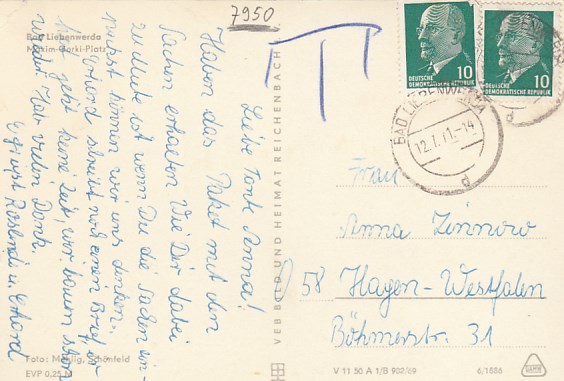 7950
Bad Liebenwerda
Maxim-Gorki-Platz
Liebe Tante Anna!
Haben das Paket mit den
Sachen erhalten Wie Dir dabei
zu Mute ist wenn Du die Sachen ein-
packst können wir uns denken.
Erhard schreibt noch einen Brief er
hat jetzt keine Zeit, wir bauen schon
wieder. Für vielen Dank.
Es grüßt Roslendi u. Erhard
Foto: Monlig, Schönfeld
EVP 0,25 M
VEB BILD UND HEIMAT REICHENBACH
DEUTSCHE
DEMOKRATISCHE REPUBLIK
10
DEUTSCHE
DEMOKRATISCHE REPUBLIK
10
BAD LIEBENWERDA
12.7.71-14
d
d
Frau
Anna Zinnow
58 Hagen-Westfalen
Böhmerstr. 31
V 11 50 A 1/B 902/69
6/1886